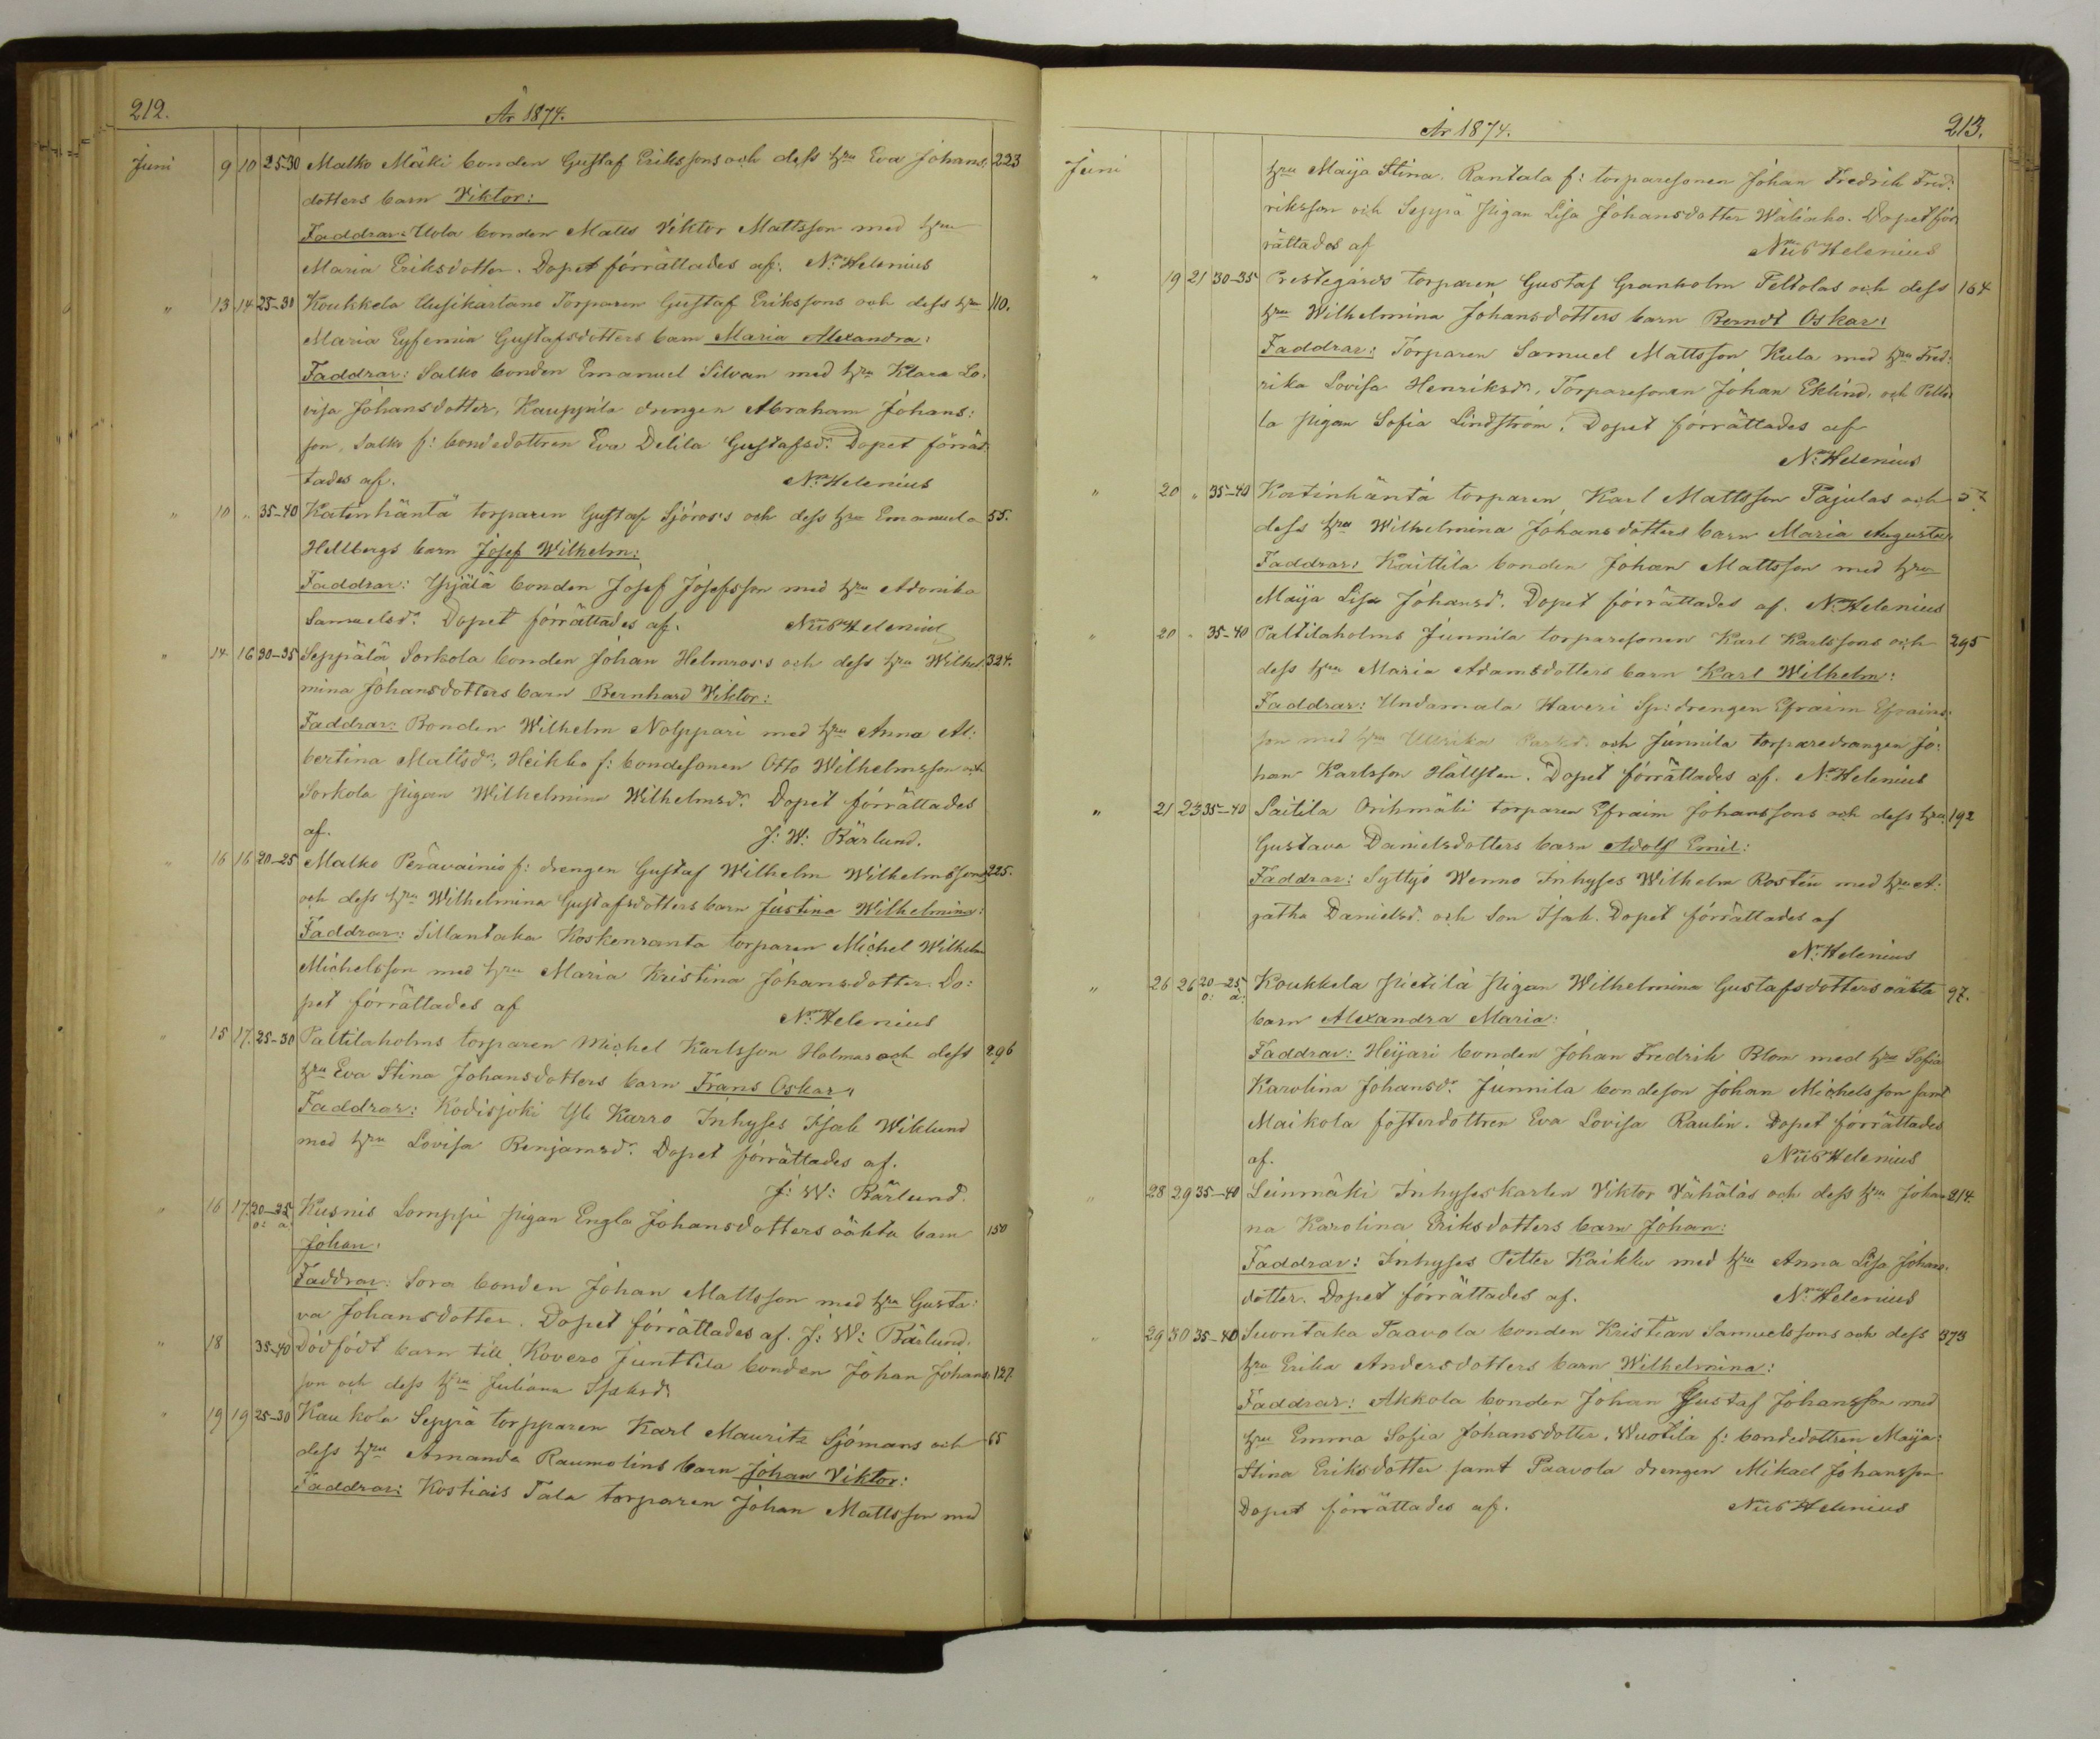 212.
År 1874.
Juni 9 10 25-30 Matko Mäki bonden Gustaf Erikssons och dess hru Eva Johans: 223
dotters barn Viktor:
Faddrar: Uola bonden Matts Viktor Mattsson med hru
Maria Eriksdotter. Dopet förrättades af: N. Helenius
" 13 14 25-30 Koukkela Uusikartano Torparen Gustaf Erikssons och dess hru 110.
Maria Eufemia Gustafsdotters barn Maria Alexandra:
Faddrar: Salko bonden Emanuel Silvan med hru Klara Lo:
visa Johansdotter, Kauppila drengen Abraham Johans:
son, Salko f: bondedottren Eva Delila Gustafsdr. Dopet förrät
tades af. N. Helenius
" 10 " 35-40 Katinhäntä torparen Gustaf Sjöros's och dess hru Emanuela 55.
Hellbergs barn Josef Wilhelm:
Faddrar: Ypjälä bonden Josef Josefsson med hru Adonika
Samuelsdr. Dopet förrättades af. Nils Helenius
" 14 16 30-35 Seppälä Sorkola bonden Johan Helmros's och dess hru Wilhel: 324.
mina Johansdotters barn Bernhard Viktor:
Faddrar: Bonden Wilhelm Nolppari med hru Anna Al:
bertina Mattsdr, Heikko f: bondesonen Otto Wilhelmsson och
Sorkola pigan Wilhelmina Wilhelmsdr. Dopet förrättades
af. J: W: Bärlund.
" 16 16 20-25 Matko Perävainio f: drengen Gustaf Wilhelm Wilhelmssons 225.
och dess hru Wilhelmina Gustafsdotters barn Justina Wilhelmina:
Faddrar: Sillantaka Koskenranta torparen Michel Wilhelm
Michelsson med hru Maria Kristina Johansdotter. Do:
pet förrättades af N. Helenius
" 15 17. 25-30 Paltilaholms torparen Michel Karlsson Holmas och dess 296
hru Eva Stina Johansdotters barn Frans Oskar"
Faddrar: Kodisjoki Yli Karro Inhyses Isak Wiklund
med hru Lovisa Benjamsdr. Dopet förrättades af.
J: W: Bärlund.
" 16 17. 20-25 Kusnis Lomppi pigan Engla Johansdotters oäkta barn 150
o: ä:
Johan:
Faddrar: Sora bonden Johan Mattsson med hru Gusta:
va Johansdotter. Dopet förrättades af. J: W: Bärlund.
" 18 35-40 Dödfödt barn till Kovero Junttila bonden Johan Johans: 127.
son och dess hru Juliana Isaksdr
" 19 19 25-30 Kaukola Seppä torpparen Karl Mauritz Sjömans och 65
dess hru Amanda Raumolins barn Johan Viktor:
Faddrar: Kostiais Tala torparen Johan Mattsson med
År 1874.
213.
Juni hru Maija Stina. Rantala f: torparesonen Johan Fredrik Fred:
riksson och Seppä pigan Lisa Johansdotter Wäliaho. Dopet för
rättades af Nils Helenius
" 19 21 30-35 Prestegårds torparen Gustaf Granholm Peltolas och dess 164
hru Wilhelmina Johansdotters barn Berndt Oskar:
Faddrar: Torparen Samuel Mattsson Kula med hru Fred:
rika Lovisa Henriksdr, Torparesonen Johan Eklind, och Pelto
la pigan Sofia Lindström. Dopet förrättades af
N. Helenius
" 20 " 35-40 Katinhäntä torparen Karl Mattsson Pajulas och
dess hru Wilhelmina Johansdotters barn Maria Augusta:
Faddrar: Kaittila bonden Johan Mattsson med hru
Maija Lisa Johansdr. Dopet förrättades af. N. Helenius
" 20 " 35-40 Paltilaholms Junnila torparesonen Karl Karlssons och 295
dess hru Maria Adamsdotters barn Karl Wilhelm:
Faddrar: Undamala Haveri Sp: drengen Efraim Efraims:
son med hru Ullrika och Junnila torparedrengen Jo:
han Karlsson Hällsten. Dopet förrättades af. N. Helenius
" 21 23 35-40 Saitila Orihmäki torparen Efraim Johanssons och dess hru 192
Gustava Danielsdotters barn Adolf Emil:
Faddrar: Syttyö Wenno Inhyses Wilhelm Rostén med hru A:
gatha Danielsd. och son Isak. Dopet förrättades af
N. Helenius
" 26 26 20-25 Koukkela Pietilä pigan Wilhelmina Gustafsdotters oäkta 97.
o: ä:
barn Alexandra Maria:
Faddrar: Heijari bonden Johan Fredrik Blom med hru Sofia
Karolina Johansdr. Junnila bondeson Johan Michelsson samt
Maikola fosterdottren Eva Lovisa Raulin. Dopet förrättades
af. Nils Helenius
" 28 29 35-40 Leinmäki Inhyseskarlen Viktor Vähäläs och dess hru Johan 214.
na Karolina Eriksdotters barn Johan:
Faddrar: Inhyses Petter Kaikko med hru Anna Lisa Johans:
dotter. Dopet förrättades af. N. Helenius
" 29 30 35-40 Suontaka Paavola bonden Kristian Samuelssons och dess 373
hru Erika Andersdotters barn Wilhelmina:
Faddrar: Akkola bonden Johan Gustaf Johansson med
hru Emma Sofia Johansdotter, Wuotila f: bondedottren Maija
Stina Eriksdotter samt Paavola drengen Mikael Johansson
Dopet förrättades af. Nils Helenius